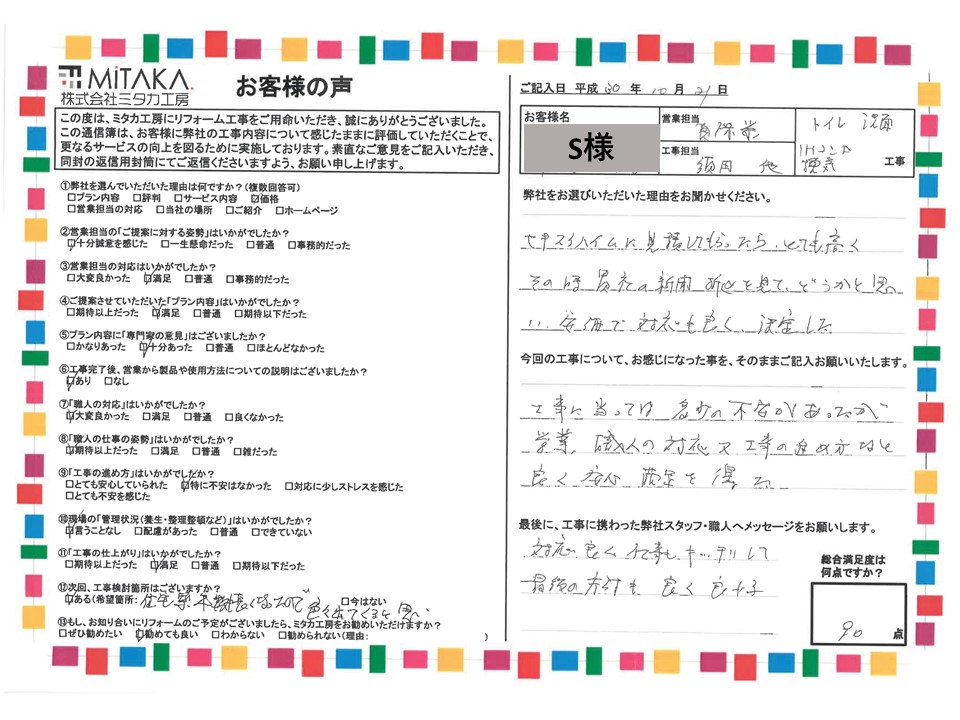 MiTAKA
株式会社ミタカ工房
お客様の声
この度は、ミタカ工房にリフォーム工事をご用命いただき、誠にありがとうございました。
この通信簿は、お客様に弊社の工事内容について感じたままに評価していただくことで、
更なるサービスの向上を図るために実施しております。素直なご意見をご記入いただき、
同封の返信用封筒にてご返信くださいますよう、お願い申し上げます。
①弊社を選んでいただいた理由は何ですか？(複数回答可)
□プラン内容 □評判 □サービス内容 ☑価格
□営業担当の対応 □当社の場所 □ご紹介 □ホームページ
②営業担当の「ご提案に対する姿勢」はいかがでしたか？
☑十分誠意を感じた □一生懸命だった □普通 □事務的だった
③営業担当の対応はいかがでしたか？
□大変良かった ☑満足 □普通 □事務的だった
④ご提案させていただいた「プラン内容」はいかがでしたか？
□期待以上だった ☑満足 □普通 □期待以下だった
⑤プラン内容に「専門家の意見」はございましたか？
□かなりあった ☑十分あった □普通 □ほとんどなかった
⑥工事完了後、営業から製品や使用方法についての説明はございましたか？
☑あり □なし
⑦「職人の対応」はいかがでしたか？
☑大変良かった □満足 □普通 □良くなかった
⑧「職人の仕事の姿勢」はいかがでしたか？
☑期待以上だった □満足 □普通 □雑だった
⑨「工事の進め方」はいかがでしたか？
□とても安心していられた ☑特に不安はなかった □対応に少しストレスを感じた
□とても不安を感じた
⑩現場の「管理状況(養生・整理整頓など)」はいかがでしたか？
☑言うことなし □配慮があった □普通 □できていない
⑪「工事の仕上がり」はいかがでしたか？
□期待以上だった ☑満足 □普通 □期待以下だった
⑫次回、工事検討箇所はございますか？
☑ある(希望箇所: 色々出てくると思い) □今はない
⑬もし、お知り合いにリフォームのご予定がございましたら、ミタカ工房をお勧めいただけますか？
□ぜひ勧めたい ☑勧めても良い □わからない □勧められない(理由: )
ご記入日 平成 30 年 10 月 21 日
お客様名
S様
営業担当
工事担当 須田 他
トイレ 洗面
IHコンロ
換気 工事
弊社をお選びいただいた理由をお聞かせください。
セキスイハイムに見積してもらったら、とても高く
その時 貴社の新聞折込を見て、どうかと思い
安価で対応も良く、決定した
今回の工事について、お感じになった事を、そのままご記入お願いいたします。
工事に当っては 多少の不安があったが
営業、職人の対応 又工事の進め方など
良く安心 満足を得た
最後に、工事に携わった弊社スタッフ・職人へメッセージをお願いします。
対応良く 仕事もキッチリして
最後の片付も 良く 良好
総合満足度は
何点ですか？
90 点